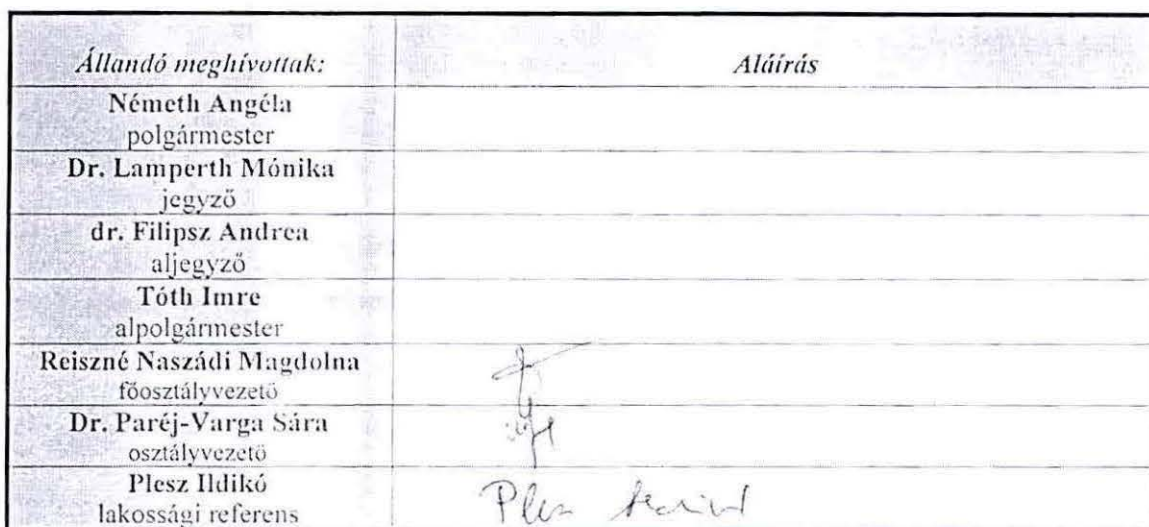 Állandó meghívottak: Aláírás
Németh Angéla
polgármester
Dr. Lamperth Mónika
jegyző
dr. Filipsz Andrea
aljegyző
Tóth Imre
alpolgármester
Reiszné Naszádi Magdolna
főosztályvezető
Dr. Paréj-Varga Sára
osztályvezető
Plesz Ildikó
lakossági referens